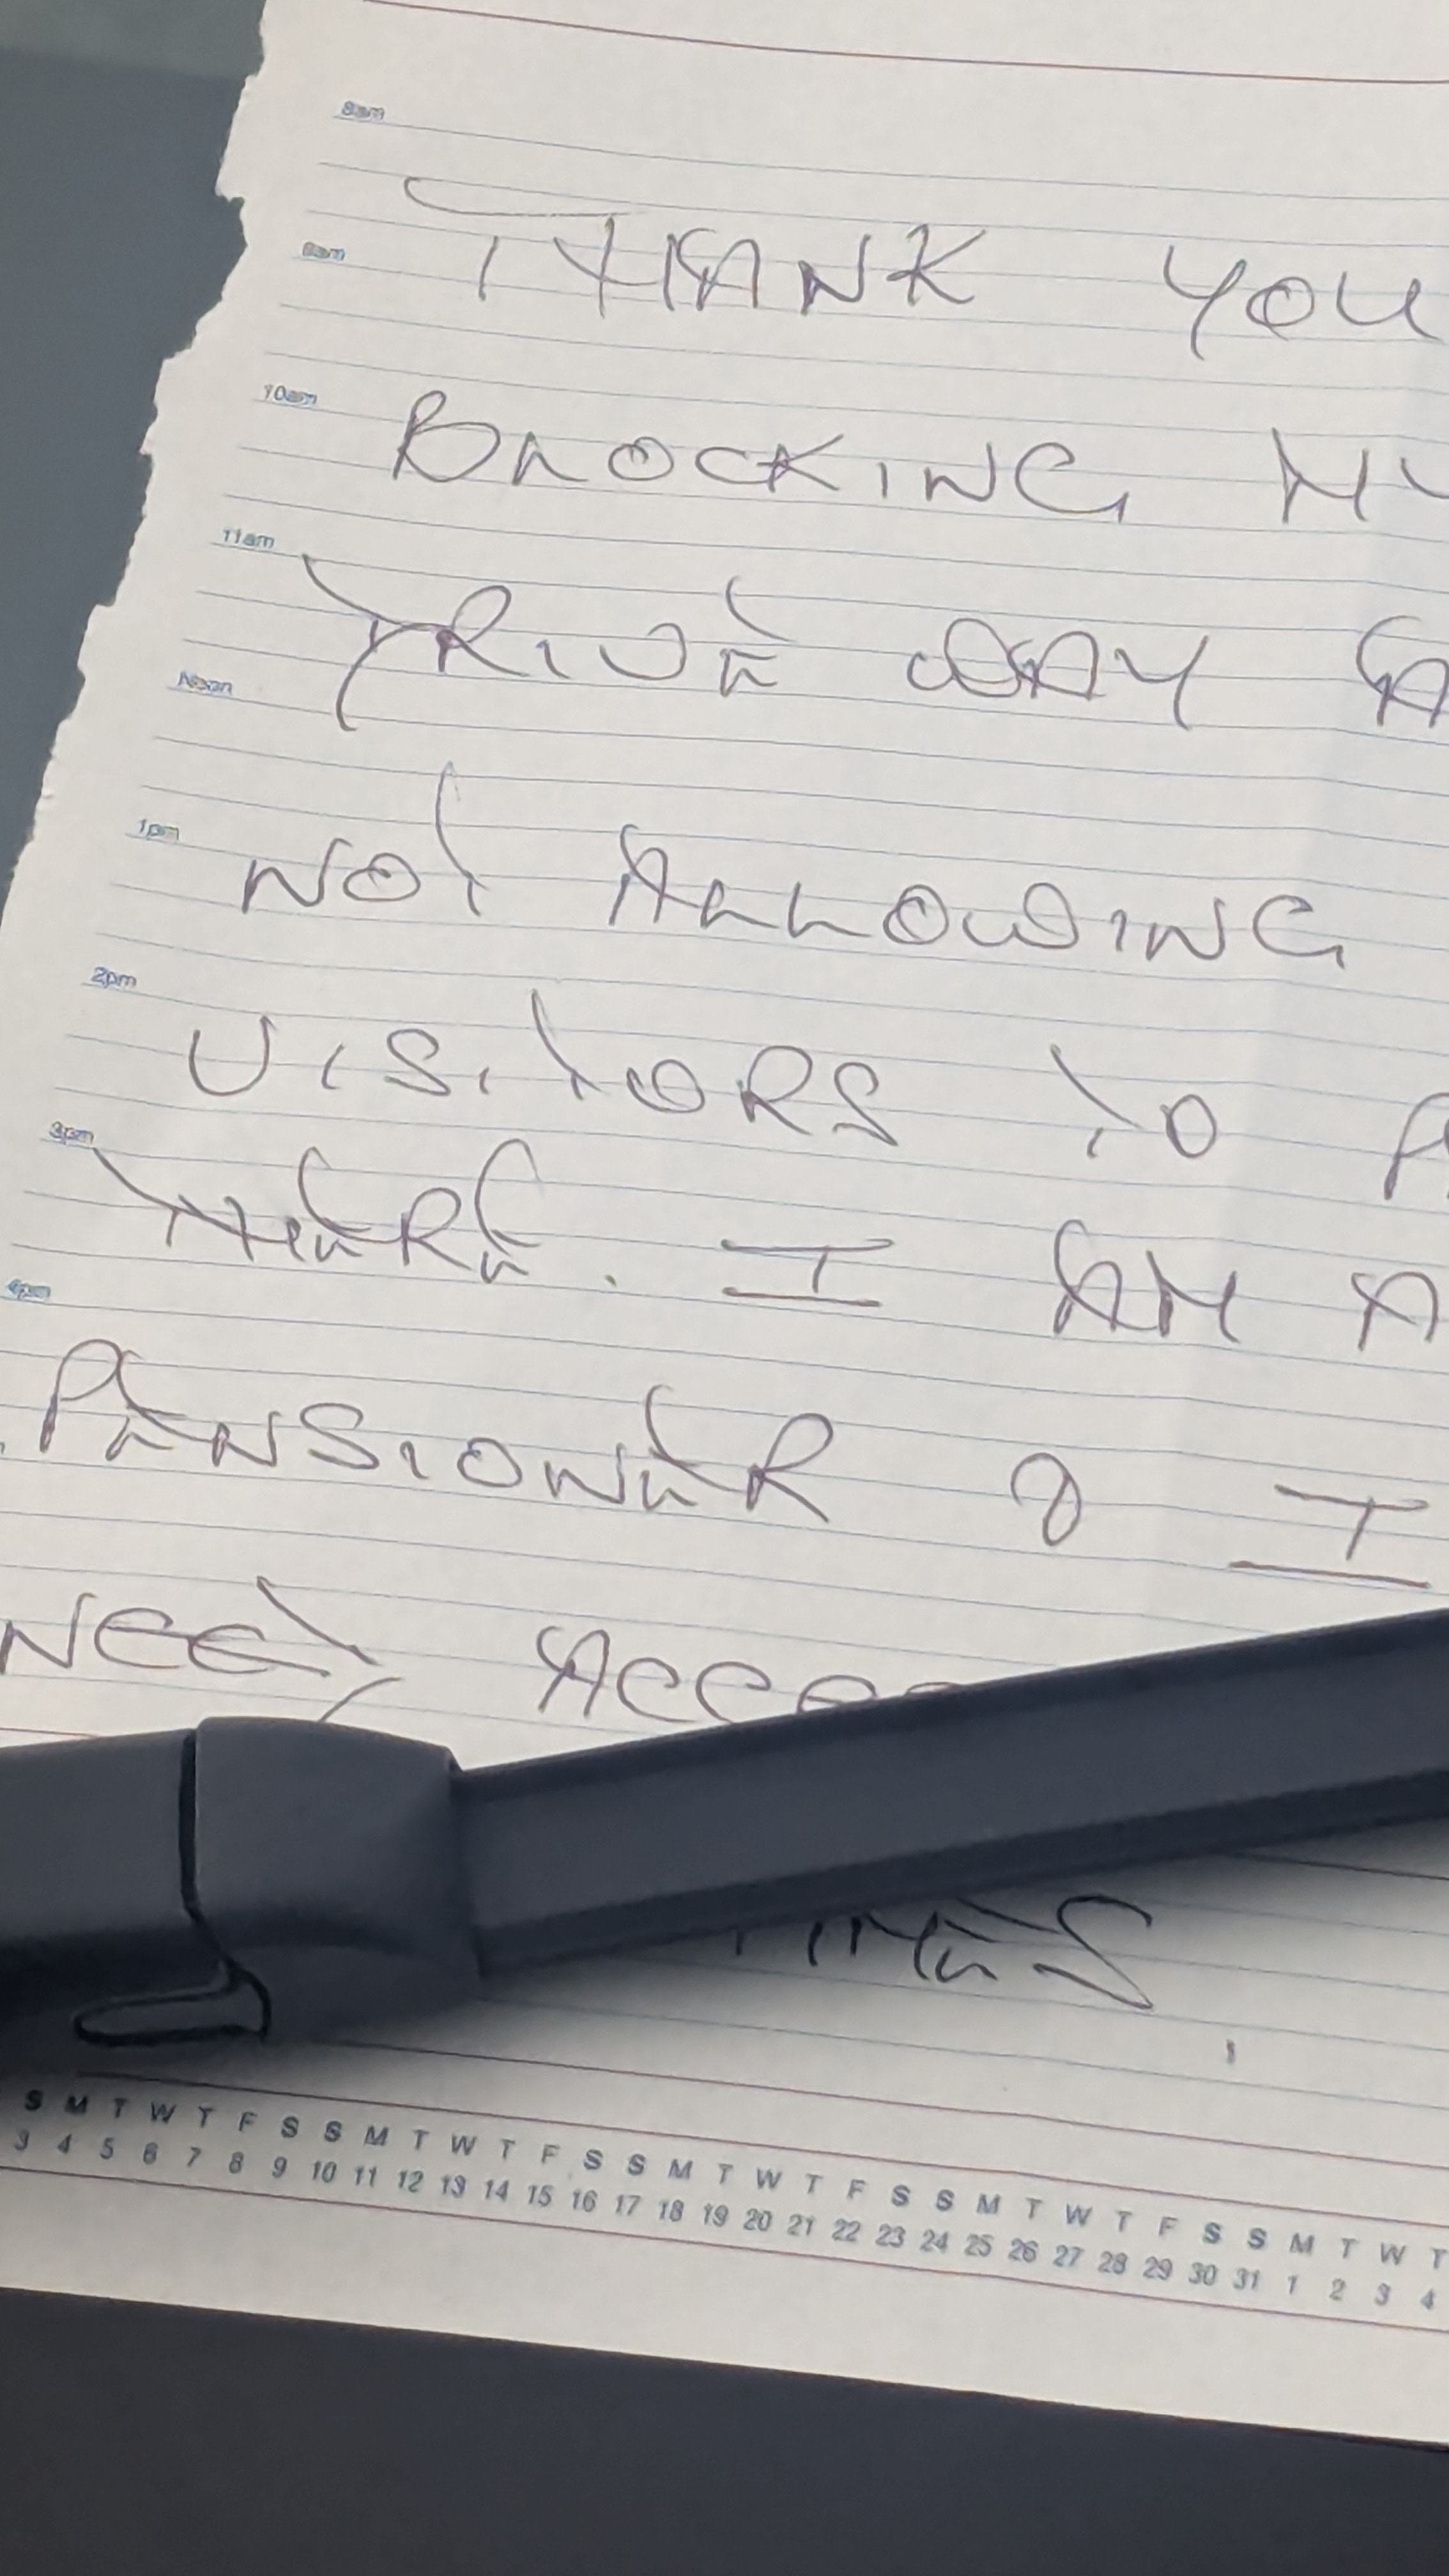 8am
THANK YOU
9am
10am
BLOCKING MY
11am
DRIVE WAY
Noon
NOT ALLOWING
1pm
2pm
VISITORS TO
3pm
THERE. I AM A
4pm
PENSIONER & I
NEED
TIMES
S M T W T F S S M T W T F S S M T W T F S S M T W T F S S M T W T
3 4 5 6 7 8 9 10 11 12 13 14 15 16 17 18 19 20 21 22 23 24 25 26 27 28 29 30 31 1 2 3 4